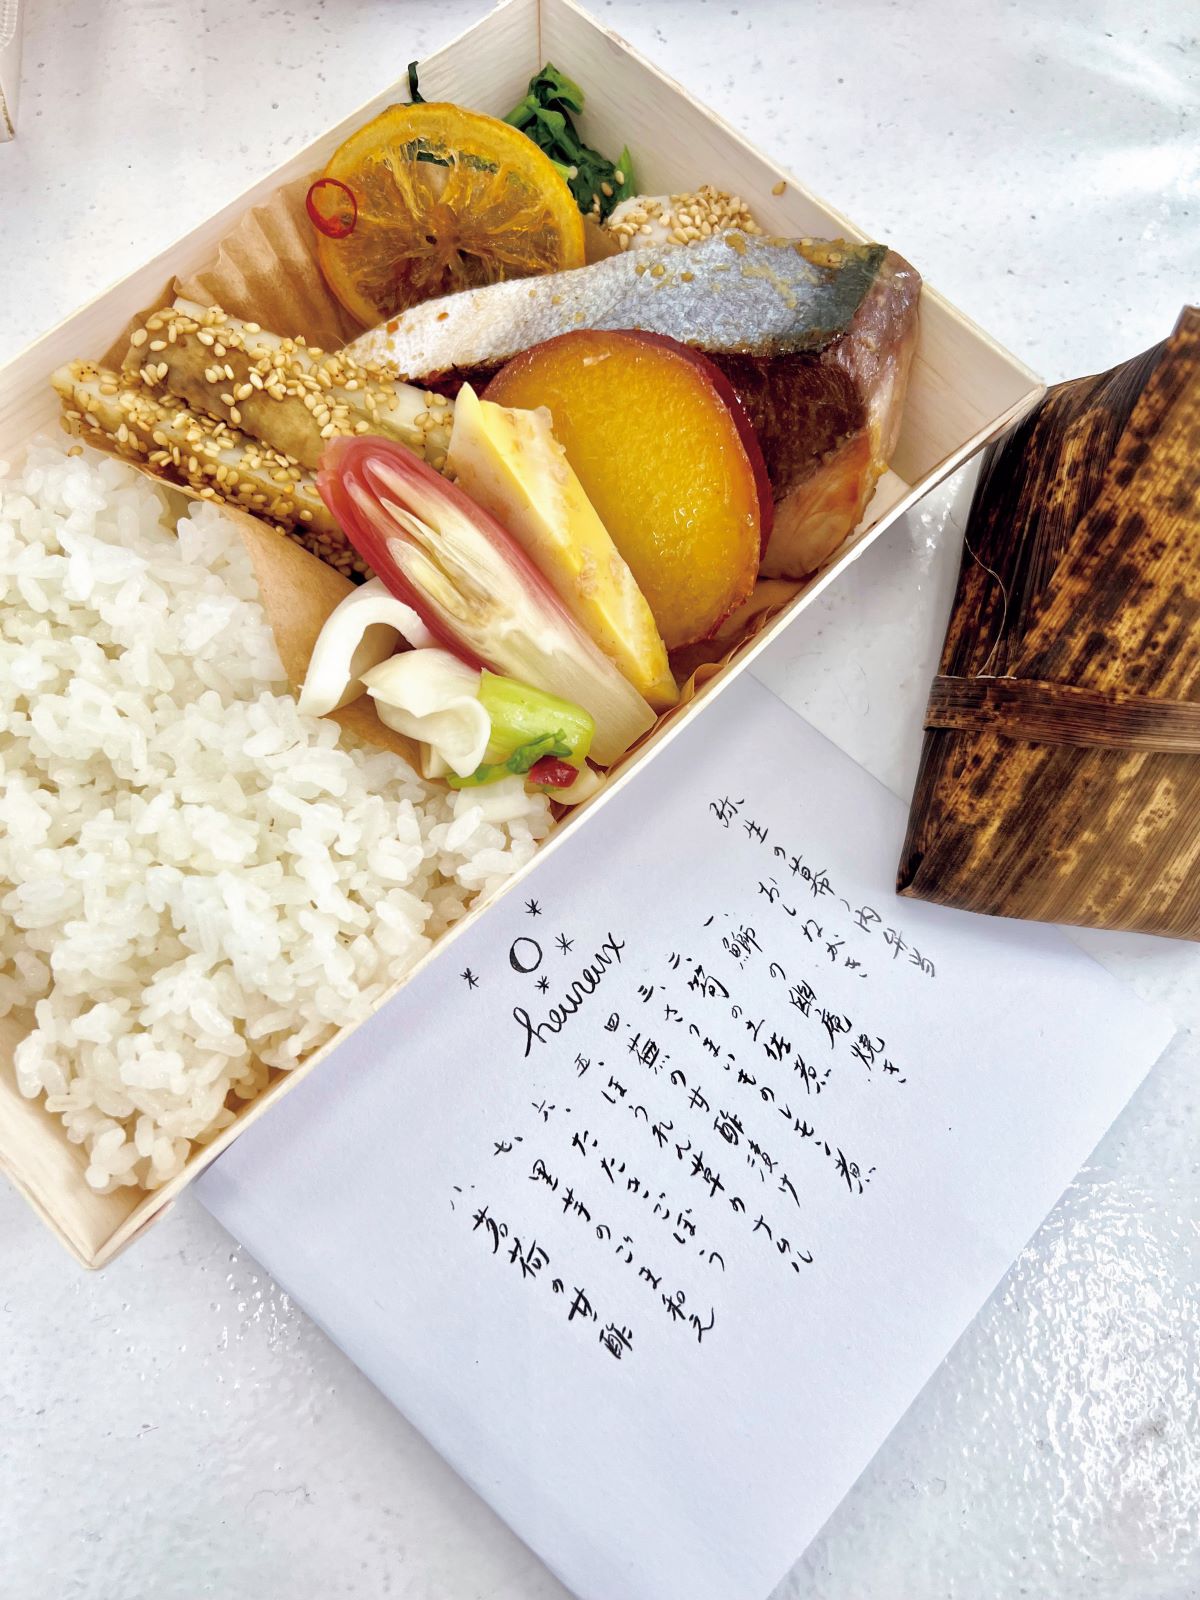 弥生の幕ノ内弁当
おしながき
一、鰤の幽庵焼き
二、筍の土佐煮
三、さつまいものレモン煮
四、蕪の甘酢漬け
五、ほうれん草のナムル
六、たたきごぼう
七、里芋のごま和え
八、茗荷の甘酢
heureux